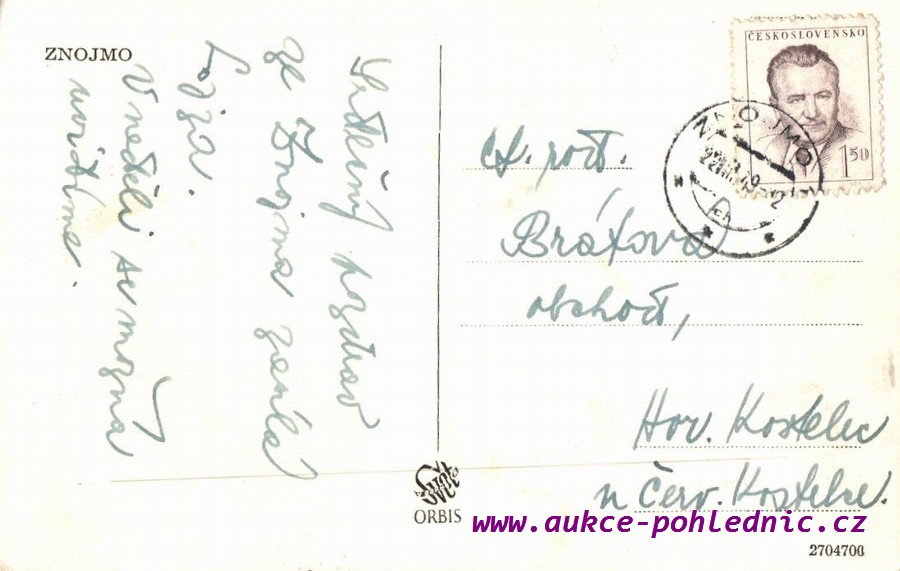 ZNOJMO
Srdečný pozdrav
ze Znojma zasílá
V neděli se možná
uvidíme.
ČESKOSLOVENSKO
1.50
ZNOJMO
Ct. rod.
Brátová
obchod,
Hor. Kostelec
n Červ. Kostelce.
ORBIS
www.aukce-pohlednic.cz
2704706